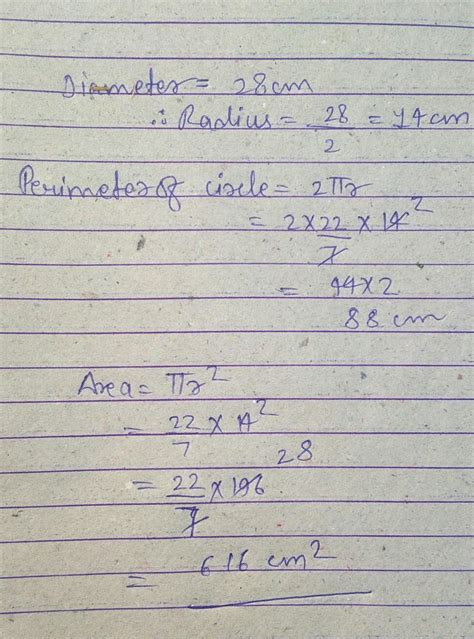 Diameter = 28cm
∴ Radius = 28/2 = 14cm
Perimeter of circle = 2πr
= 2 × 22/7 × 14 2
= 44×2
88 cm
Area = πr²
= 22/7 × 14²
28
= 22/7 × 196
= 616 cm²